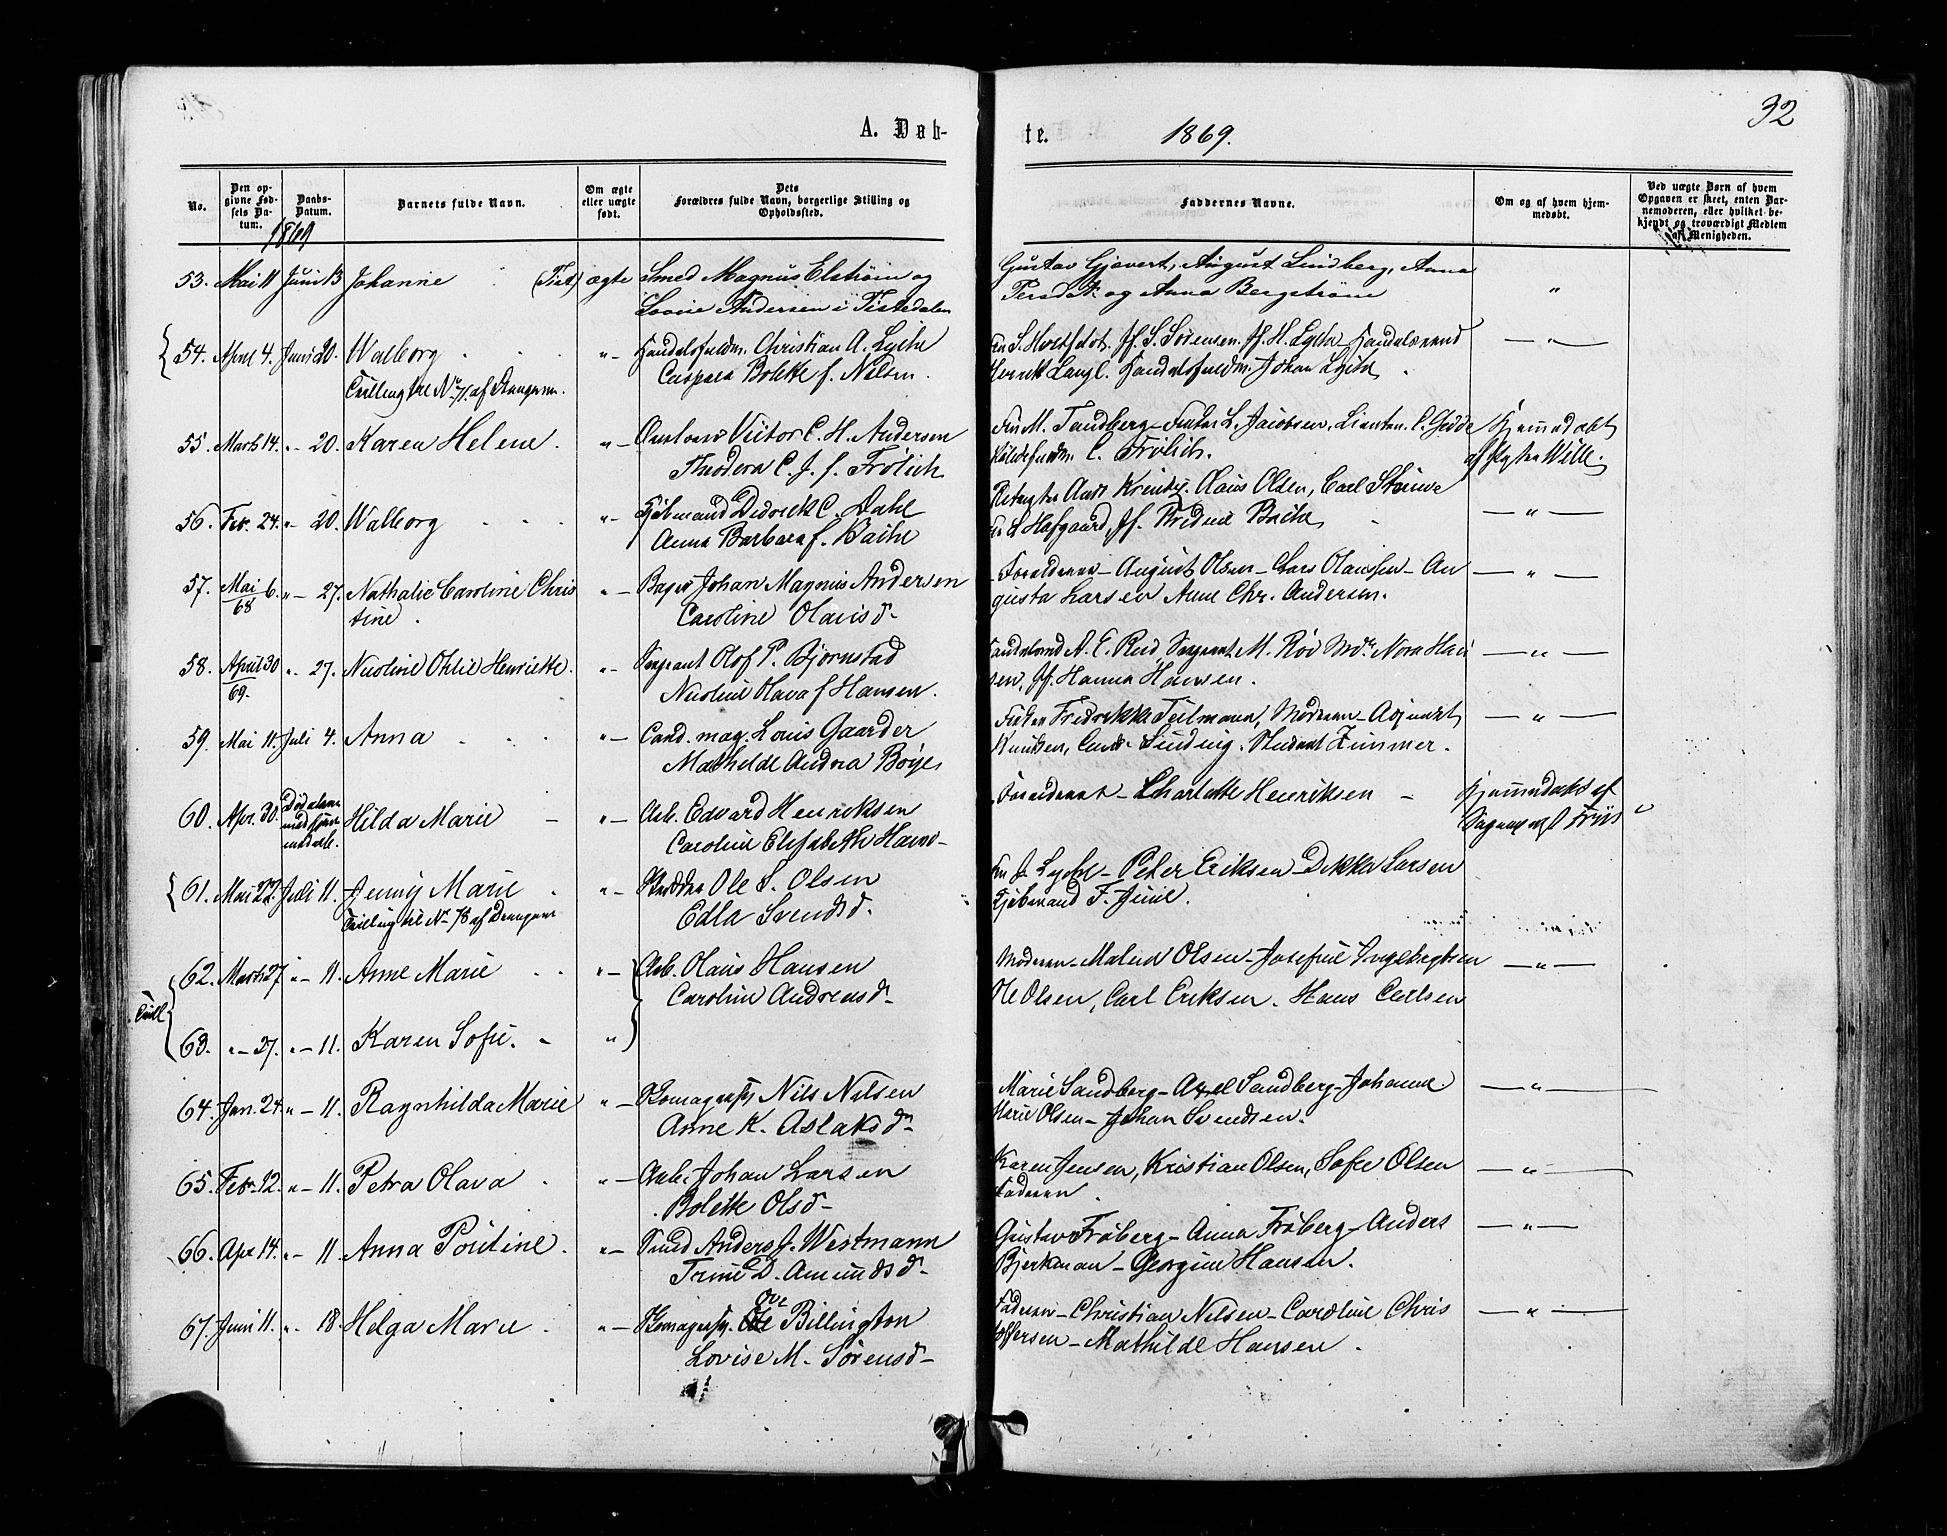 32
A. Døb-
te. 1869.
No.
Den op-
givne Fød-
sels Da-
tum.
Daabs-
Datum.
Barnets fulde Navn.
Om ægte
eller uægte
født.
Dets
Forældres fulde Navn, borgerlige Stilling og
Opholdssted.
Faddernes Navne.
Om og af hvem hjem-
medøbt.
Ved uægte Børn af hvem
Opgaven er skeet, enten Bar-
nemoderen, eller hvilket be-
kjendt og troværdigt Medlem
af Menigheden.
1869
53. Mai 11 Juni 13 Johanne (Tist) ægte Smed Magnus Elström og
Lovise Andersen i Tistedalen
Gustav Gjævert, August Lindberg, Anna
Persd. og Anna Bergström "
54. April 4. Juni 20. Walborg " Handelsfuldm. Christian A. Lyche
Tvilling til No 71. af Drengene.
Caspara Bolette f. Nilsen.
S. Sørensen. Jf. H. Lyche
Handelsfuldm. Johan Lyche — " —
55. Marts 14. " 20. Karen Helene. " Victor C. H. Andersen
Theodora C. J. f. Frölich
Fru M. Tandberg L. Jacobsen, C. Gedde
C. Frölich.
Hjemmedøbt
af Wille.
56. Febr. 24. " 20. Walborg " Kjøbmand Didrick C. Dahl
Anna Barbara f. Bache
Olaus Olsen, Carl
Hofgaard, Jf. Bache — " —
57. Mai 6. " 27. Nathalie Caroline Chris
68
tine.
" Bager Johan Magnus Andersen
Caroline Olausd.
Forældrene – August Olsen – Lars Olaussen – Au
gusta Larsen Anne Chr. Andersen. — " —
58. April 30 " 27. Nicoline Othilie Henriette. " Sergeant Olof P. Bjørnstad
69.
Nicoline Olava f Hansen.
A. E. Rud Sergeant M. Röv Nora Han
sen, Jf. Hanna Hansen. — " —
59. Mai 11. Juli 4. Anna " Cand. mag. Louis Gaarder
Mathilde Andrea Böye
Fredrikke Teilmann, Moderen – Adjunkt
Knudsen, Cand. Sinding. Student Zimmer. — " —
60. Apr. 30. Død
Hilda Marie " Arb. Edvard Henriksen
Caroline Elisabeth
Forældrene – Charlotte Henriksen
Hjemmedøbt af
Friis
61. Mai 22. Juli 11. Jenny Marie " Skrædder Ole S. Olsen
Tvilling til No 78 af Drengene
Edla Svendsd.
Fru J. Lyche – Peter Eriksen – Larsen
Kjøbmand F. Juul.
62. Marts 27 " 11. Anne Marie " Arb. Olaus Hansen
Caroline Andreasd.
Tvill
Moderen – Malena Olsen – Josefine Ingebregtsen
Ole Olsen, Carl Eriksen. Hans Carlsen — " —
63. " 27. " 11. Karen Sofie. "
64. Jan. 24. " 11. Ragnhilda Marie " Nils Nilsen
Anne K. Aslaksd.
Marie Sandberg – Axel Sandberg – Johanne
Marie Olsen – Johan Svendsen. — " —
65. Febr. 12. " 11. Petra Olava " Arb. Johan Larsen
Bolette Olsd.
Karen Jensen, Kristian Olsen, Sofie Olsen
Faderen. — " —
66. Apr 14. " 11. Anna Pouline. " Smed Anders J. Westmann
Trine D. Amundsd.
Gustav Fröberg – Anna Fröberg – Anders
Bjerkman – Georgine Hansen. — " —
67. Juni 11. " 18. Helga Marie " Ove Billington
Lovise M. Sörensd.
Faderen – Christian Nilsen – Caroline Chris
toffersen – Mathilde Hansen. — " —